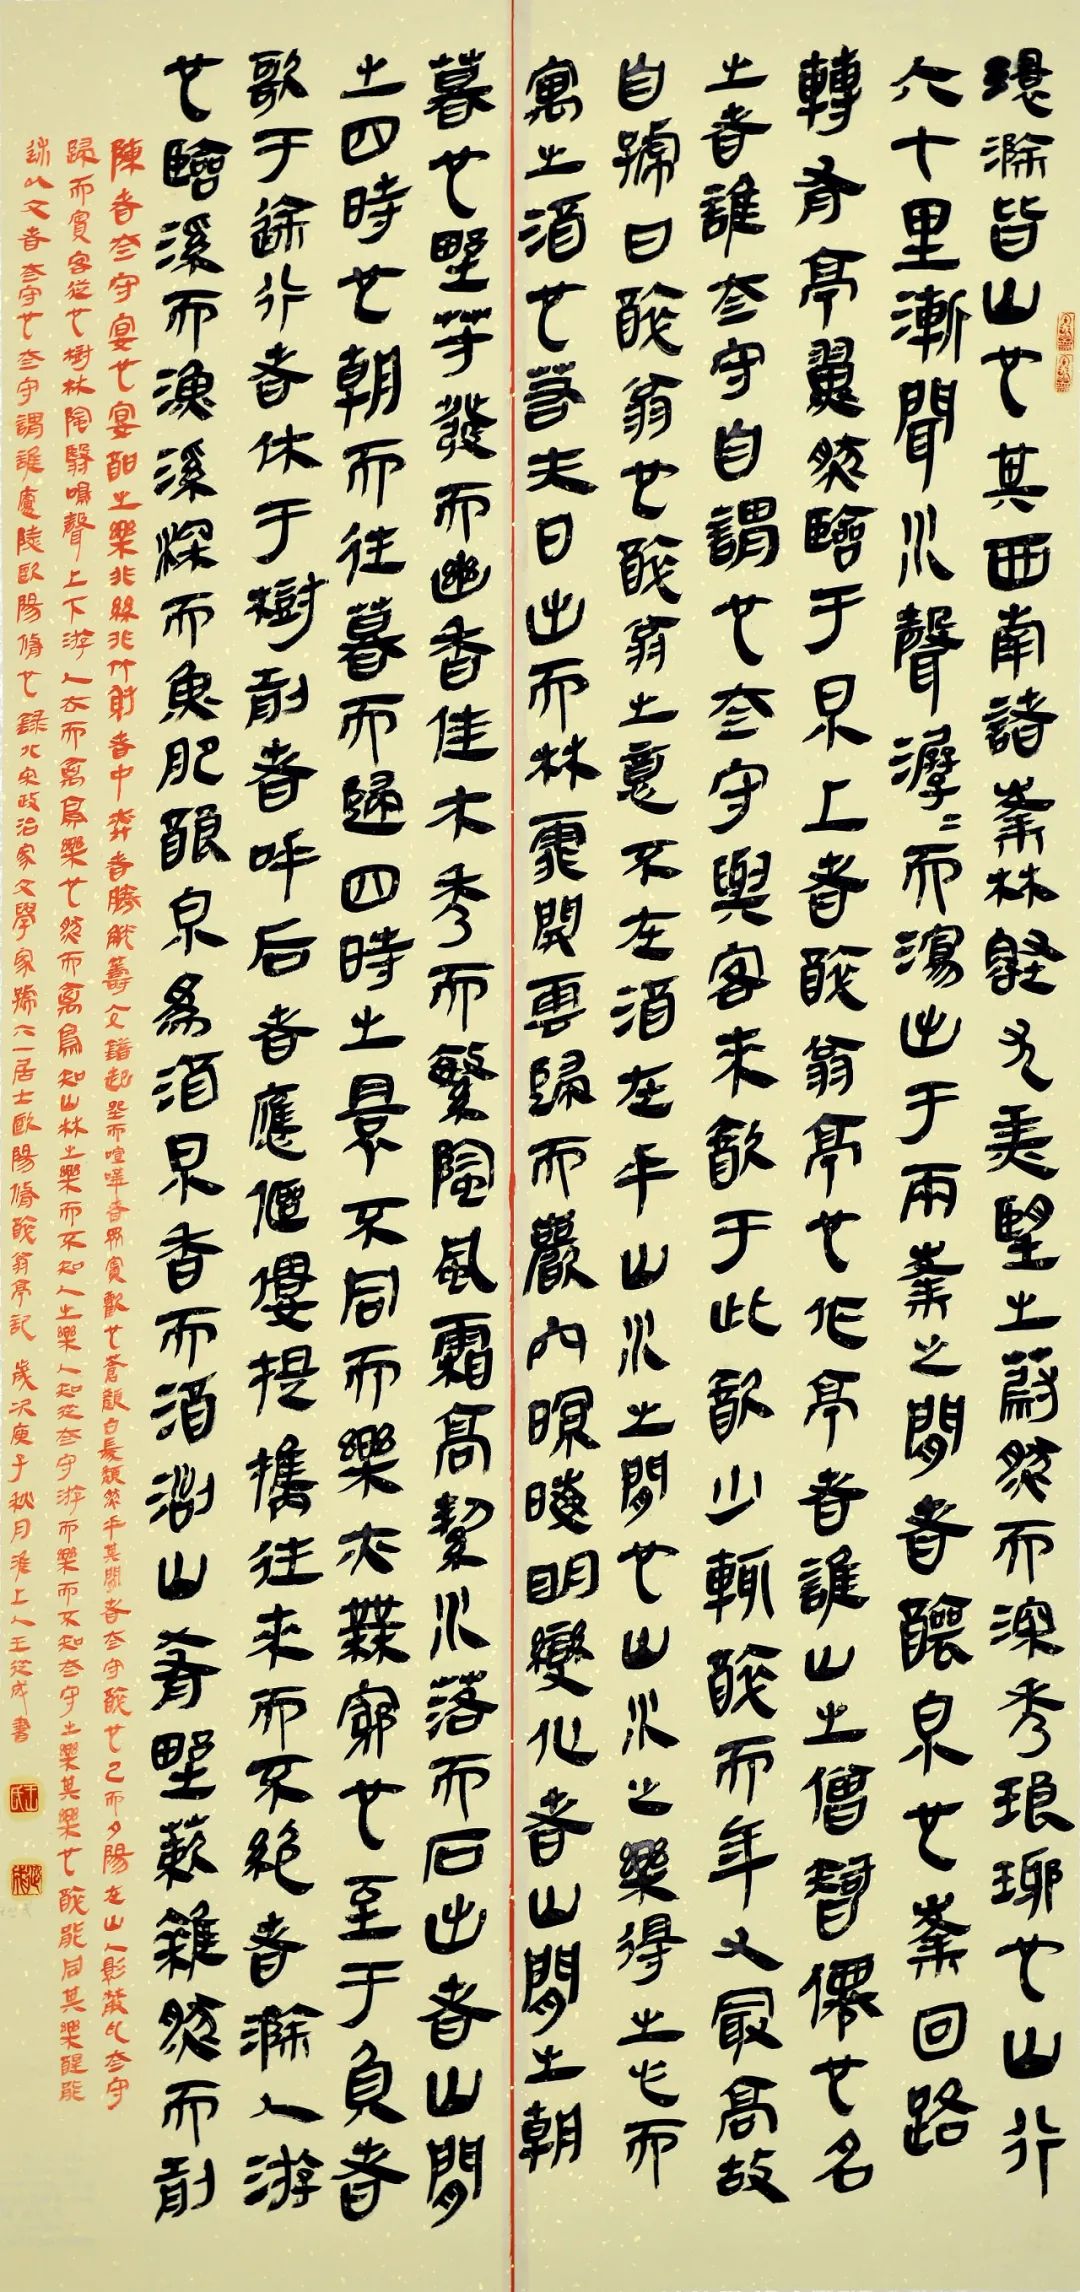 環滁皆山也其西南諸峯林壑尤美望之蔚然而深秀琅琊也山行
六七里漸聞水聲潺〻而瀉出于兩峯之間者釀泉也峯回路
轉有亭翼然臨于泉上者醉翁亭也作亭者誰山之僧智僊也名
之者誰太守自謂也太守與客來飲于此飲少輒醉而年又最高故
自號曰醉翁也醉翁之意不在酒在乎山水之間也山水之樂得之心而
寓之酒也若夫日出而林霏開雲歸而巖穴暝晦明變化者山間之朝
暮也野芳發而幽香佳木秀而繁陰風霜高絜水落而石出者山間
之四時也朝而往暮而歸四時之景不同而樂亦無窮也至于負者
歌于途行者休于樹前者呼后者應傴僂提攜往來而不絕者滁人游
也臨溪而漁溪深而魚肥釀泉為酒泉香而酒洌山肴野蔌雜然而前
陳者太守宴也宴酣之樂非絲非竹射者中弈者勝觥籌交錯起坐而喧嘩者眾賓歡也蒼顏白髮頹然乎其間者太守醉也已而夕陽在山人影散亂太守
歸而賓客從也樹林陰翳鳴聲上下游人去而禽鳥樂也然而禽鳥知山林之樂而不知人之樂人知從太守游而樂而不知太守之樂其樂也醉能同其樂醒能
述以文者太守也太守謂誰廬陵歐陽脩也 錄北宋政治家文學家號六一居士歐陽脩醉翁亭記 歲次庚子秋月淮上人王從成書
王氏
從成